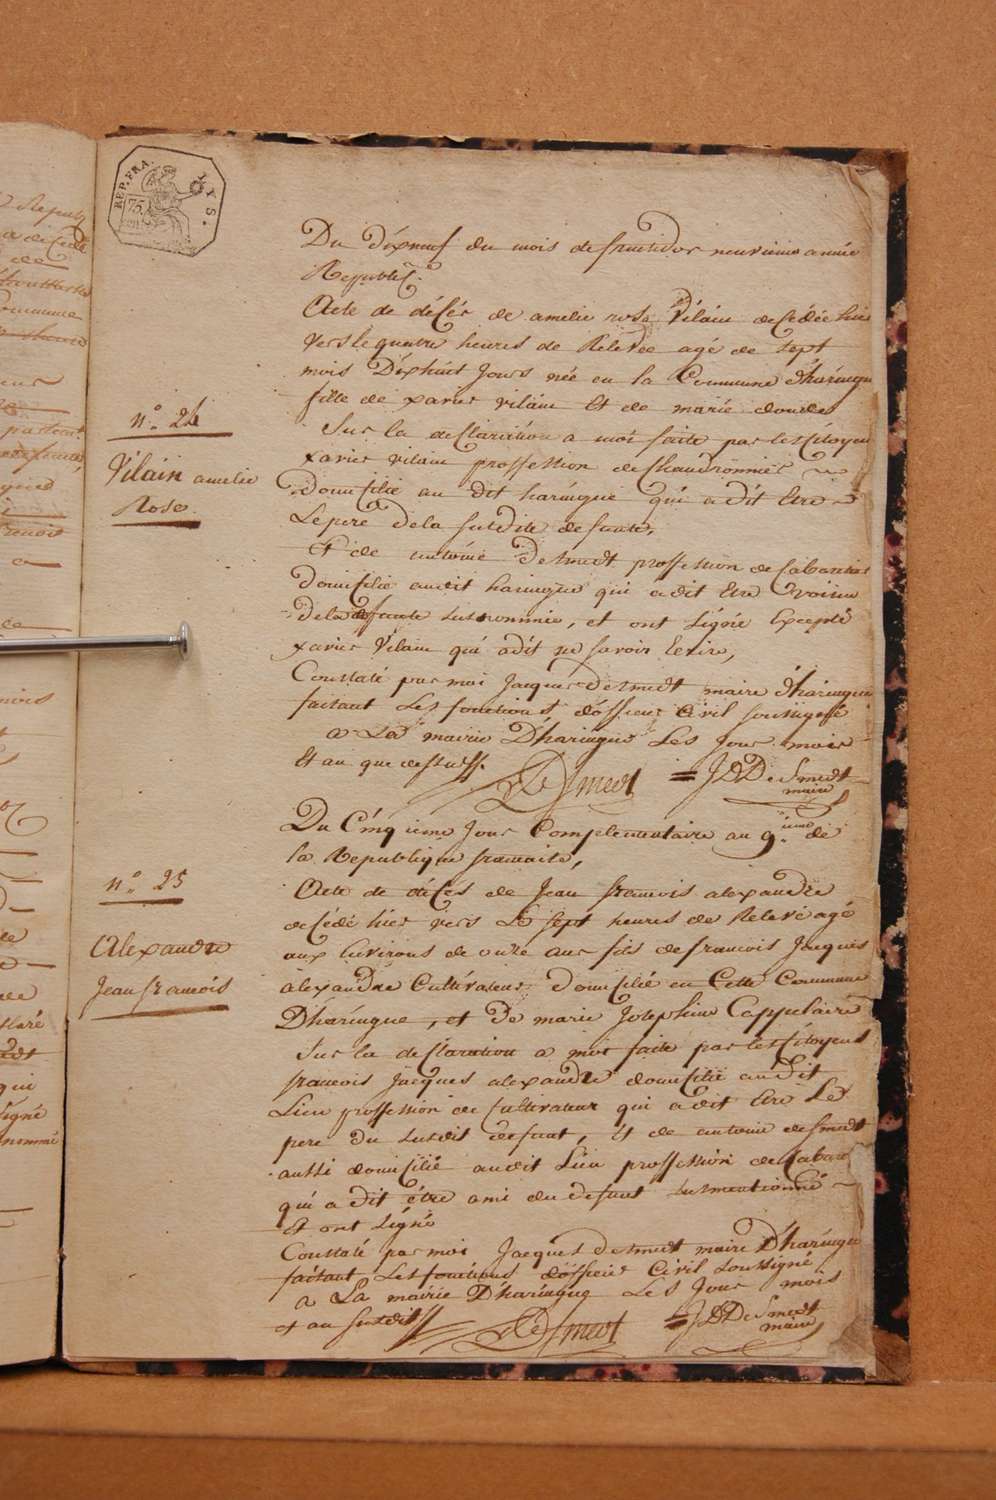 REP. FRA. LYS.
75.
cen
Du dixneuf du mois de fructidor neuvieme année
Republ.
Acte de décés de amelie rose Vilain decedée hier
vers le quatre heures de Relevée agé de sept
mois Dixhuit Jours née en la Commune d'haringu
fille de xavier vilain Et de marie
n.º 24
Vilain amelie
Rose
Sur la declaration a moi faite par les Citoyen
xavier vilain proffession de Chaudronnier
Domicilié au dit haringue qui a dit Etre
Le pere de la susdite defunte,
Et de antoine Desmedt proffession de Cabaretier
Domicilié audit haringue qui a dit Etre voisin
de la defunte susnommée, et ont signé Excepté
xavier Vilain qui a dit ne savoir Ecrire,
Constaté par moi Jacques Desmedt maire d'haringue
faisant Les fonctions d'officier Civil soussigné
a La mairie D'haringue Les Jour mois
Et an que dessus.
De Smedt = J D De Smedt
maire
Du Cinqieme Jour Complementaire an 9.ieme de
la Republique francaise,
n.º 25
Alexandre
Jean francois
Acte de décés de Jean francois alexandre
decédé hier vers Le sept heures de Relevé agé
aux Environs de onze ans fils de francois Jacques
alexandre Cultivateur Domicilié en Cette Commune
D'haringue, et De marie Josephine Cappelaire
Sur la declaration a moi faite par les Citoyens
francois Jacques alexandre domicilié audit
Lieu proffession de Cultivateur qui a dit Etre Le
pere du susdit defunt, Et de antoine desmedt
aussi domicilié audit Lieu proffession de Cabare
qui a dit étre ami du defunt susmentionné
Et ont signé
Constaté par moi Jacques Desmedt maire D'haringue
faisant Les fonctions d'officier Civil soussigné
a La mairie D'haringue Les Jour mois
et an susdits
De Smedt = J D De Smedt
maire